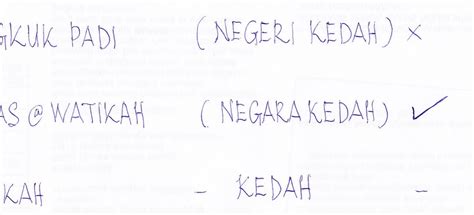 GKUK PADI (NEGERI KEDAH) ×
AS @ WATIKAH (NEGARA KEDAH) ✓
KAH - KEDAH -